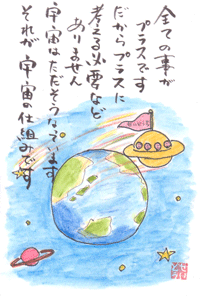 全ての事が
プラスです
だからプラスに
考える必要など
ありません
宇宙はただそうなっています
それが宇宙の仕組みです